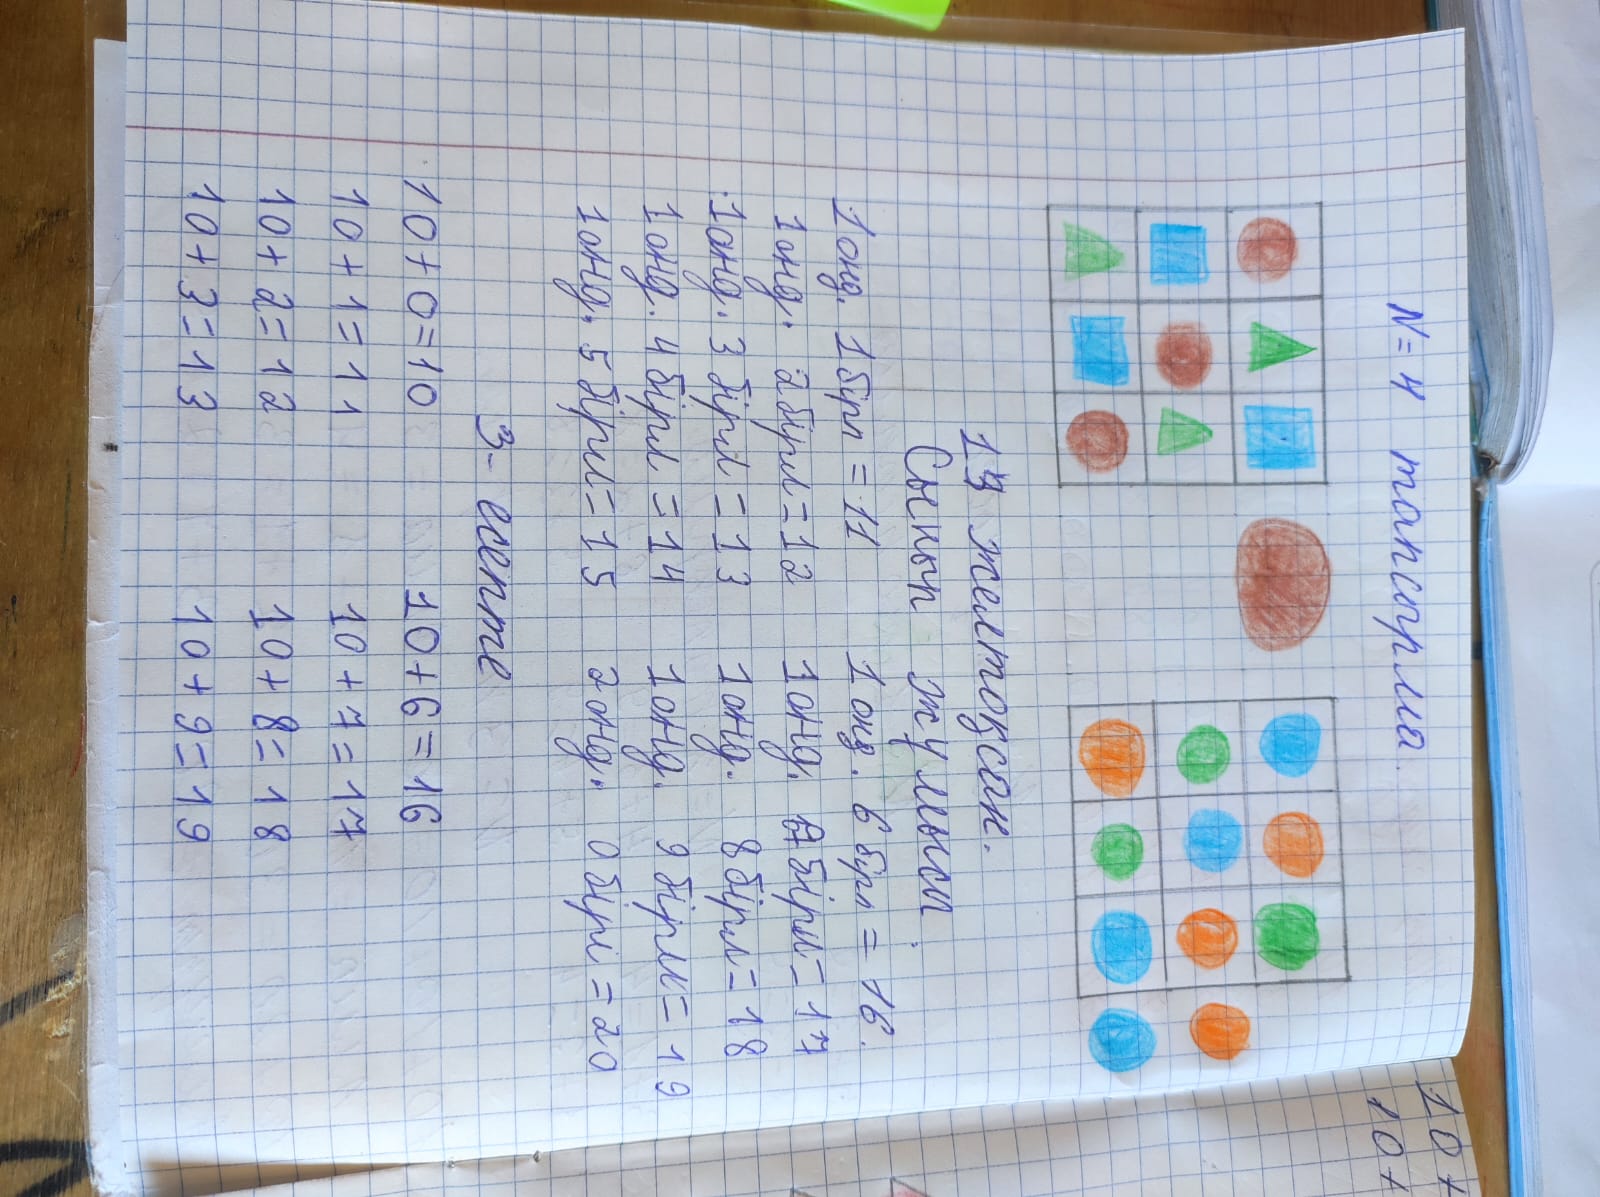 N=4 тапсырма.
13 желтоқсан.
Сынып жұмысы.
1 онд. 1 бірл = 11 1 онд. 6 бірл = 16.
1 онд. 2 бірл = 12 1 онд. 7 бірл = 17
1 онд. 3 бірл = 13 1 онд. 8 бірл = 18
1 онд. 4 бірл = 14 1 онд. 9 бірл = 19
1 онд. 5 бірл = 15 2 онд. 0 бірл = 20
3- есепте
10+0=10 10+6=16
10+1=11 10+7=17
10+2=12 10+8=18
10+3=13 10+9=19
10+
10+